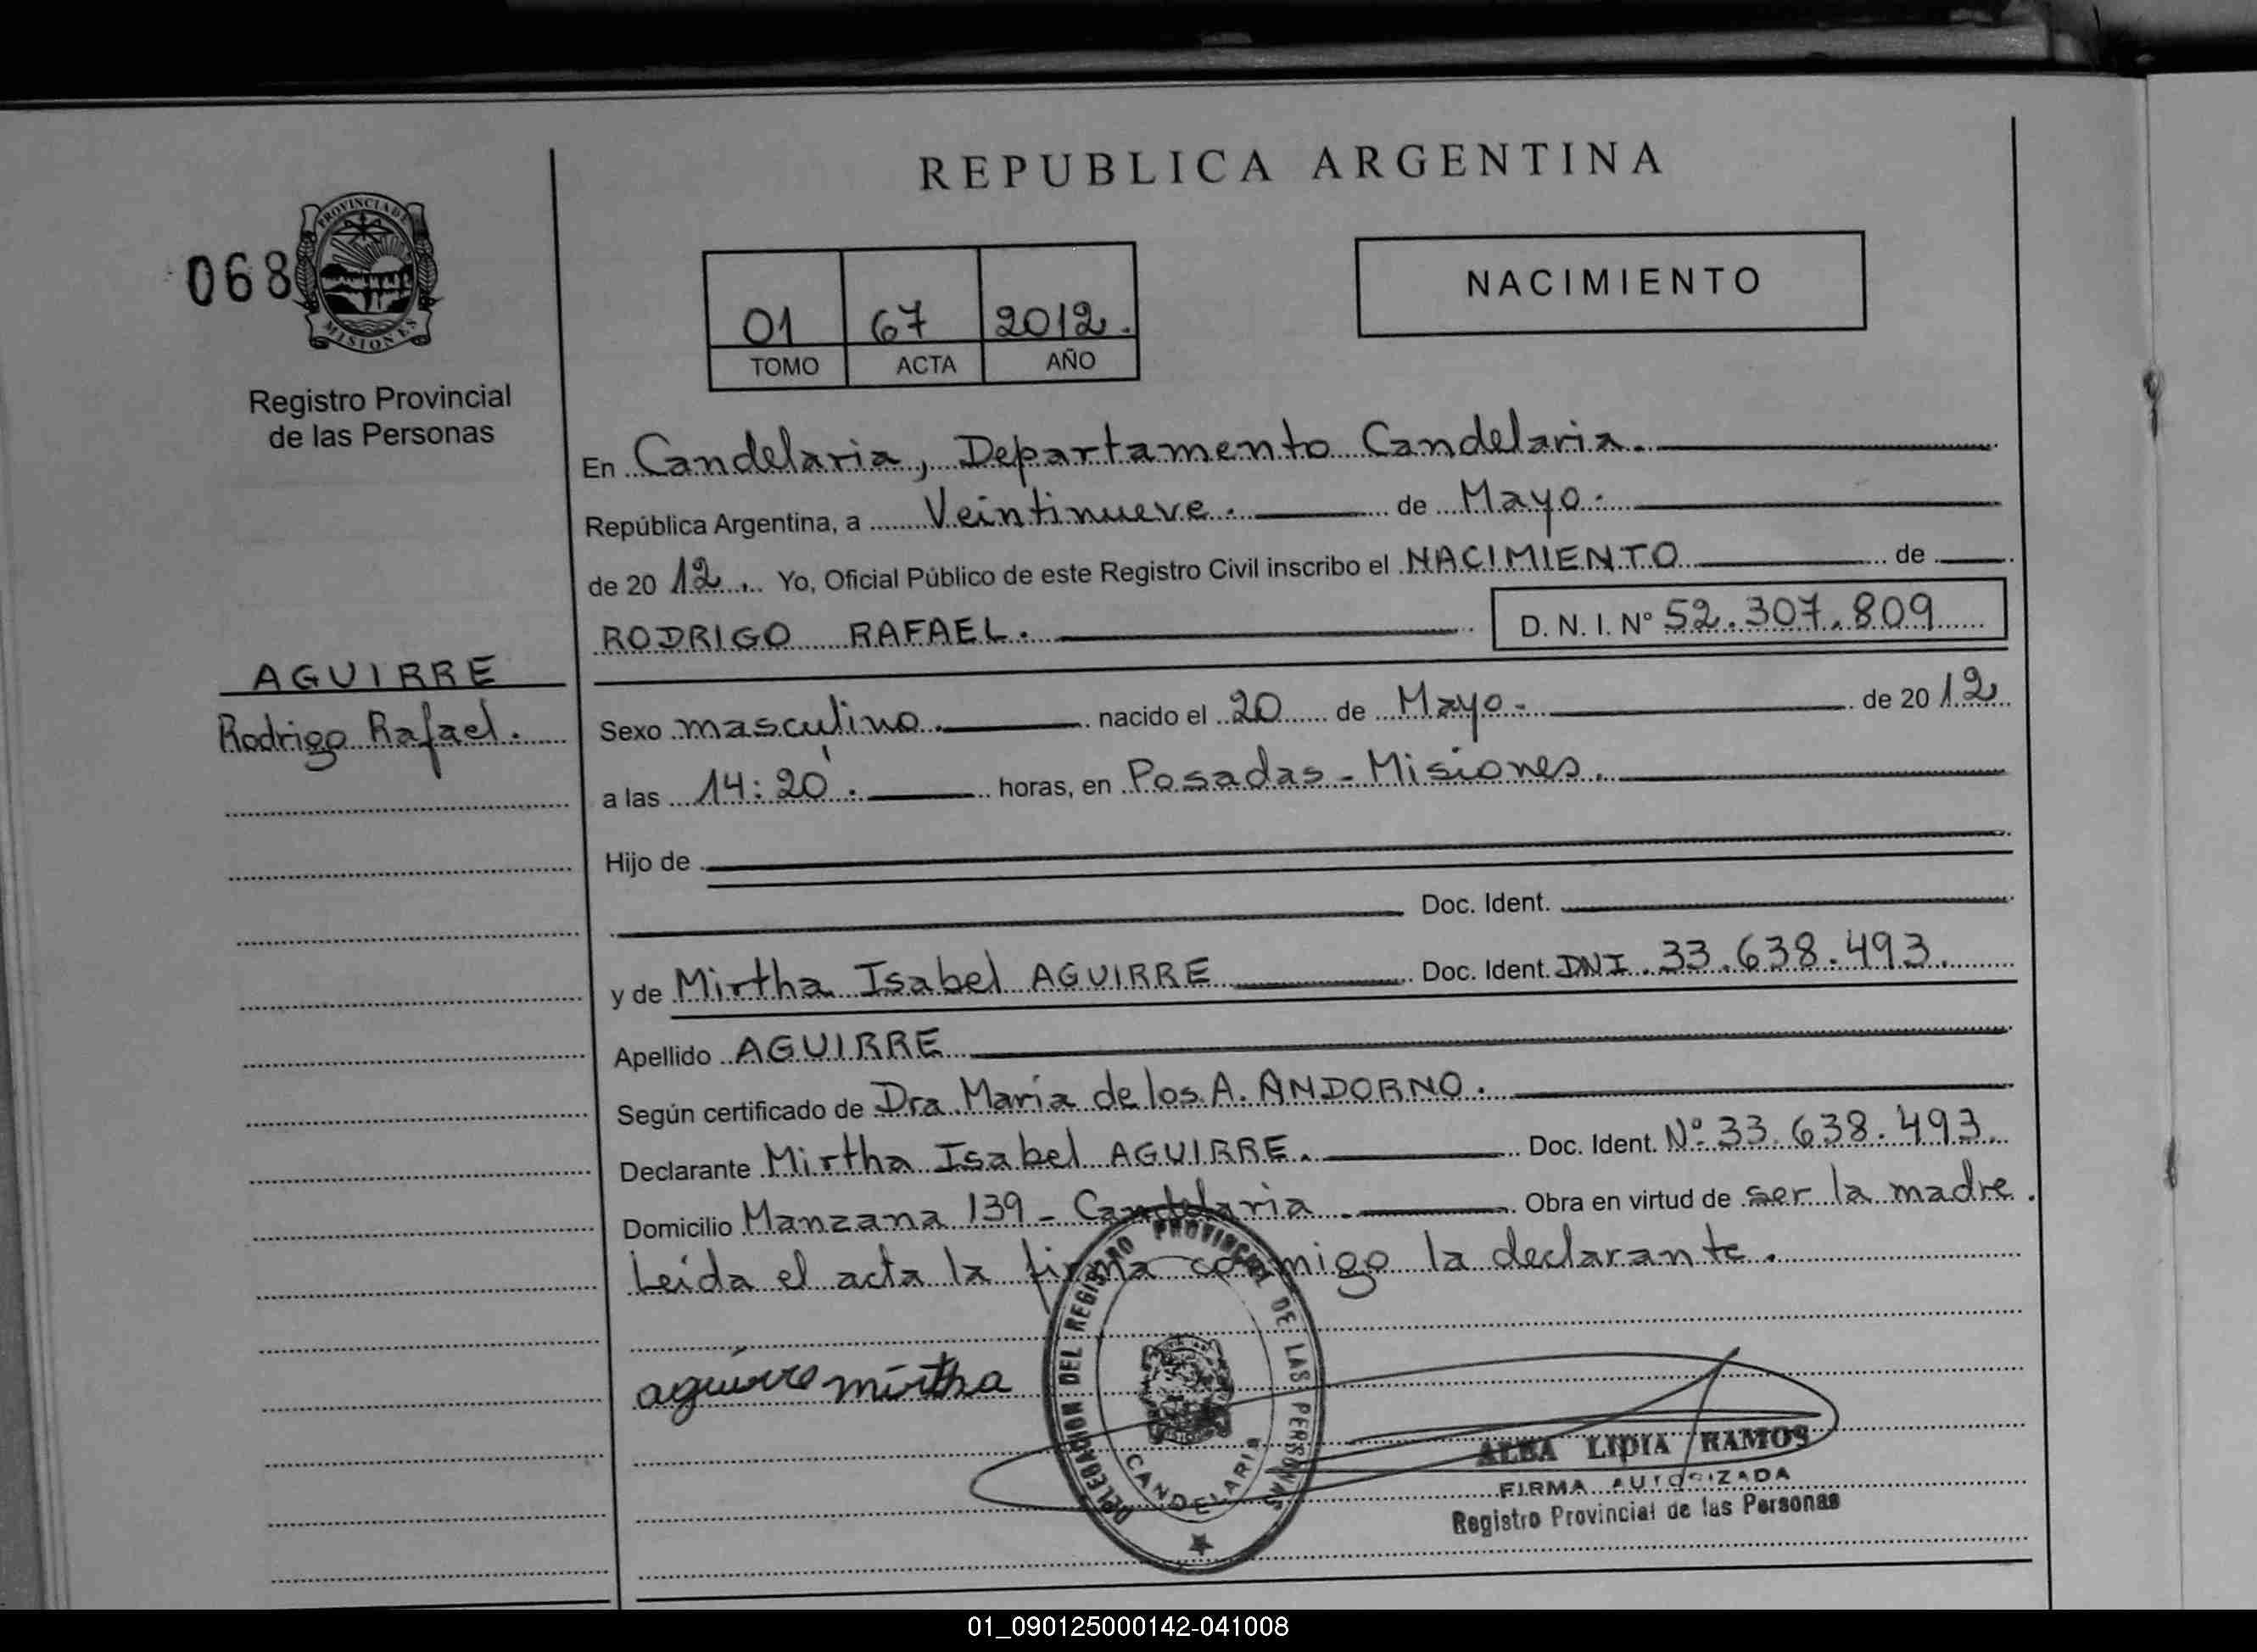 REPUBLICA ARGENTINA
PROVINCIA DE
MISIONES
068
Registro Provincial
de las Personas
01 67 2012.
TOMO ACTA AÑO
NACIMIENTO
En Candelaria, Departamento Candelaria.
República Argentina, a Veintinueve. de Mayo.
de 20 12. Yo, Oficial Público de este Registro Civil inscribo el NACIMIENTO de
RODRIGO RAFAEL. D. N. I. Nº 52.307.809
AGUIRRE
Rodrigo Rafael.
Sexo masculino. nacido el 20 de Mayo- de 20 12
a las 14:20'. horas, en Posadas - Misiones.
Hijo de
Doc. Ident.
y de Mirtha Isabel AGUIRRE Doc. Ident. DNI. 33.638.493.
Apellido AGUIRRE
Según certificado de Dra. María de los A. ANDORNO.
Declarante Mirtha Isabel AGUIRRE. Doc. Ident. Nº 33.638.493.
Domicilio Manzana 139 - Candelaria. Obra en virtud de ser la madre.
Leída el acta la firma conmigo la declarante.
aguirre mirtha
DELEGACION DEL REGISTRO PROVINCIAL DE LAS PERSONAS
CANDELARIA
ALBA LIDIA RAMOS
FIRMA AUTORIZADA
Registro Provincial de las Personas
01_090125000142-041008